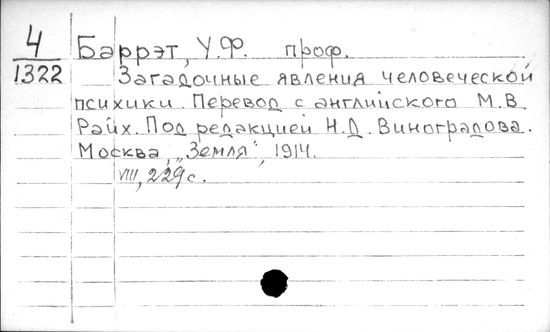 4
1322
Баррэт, У.Ф. проф.
Загадочные явления человеческой
психики. Перевод с английского М.В.
Райх. Под редакцией Н.Д. Виноградова.
Москва, „Земля", 1914.
VIII, 229 с.